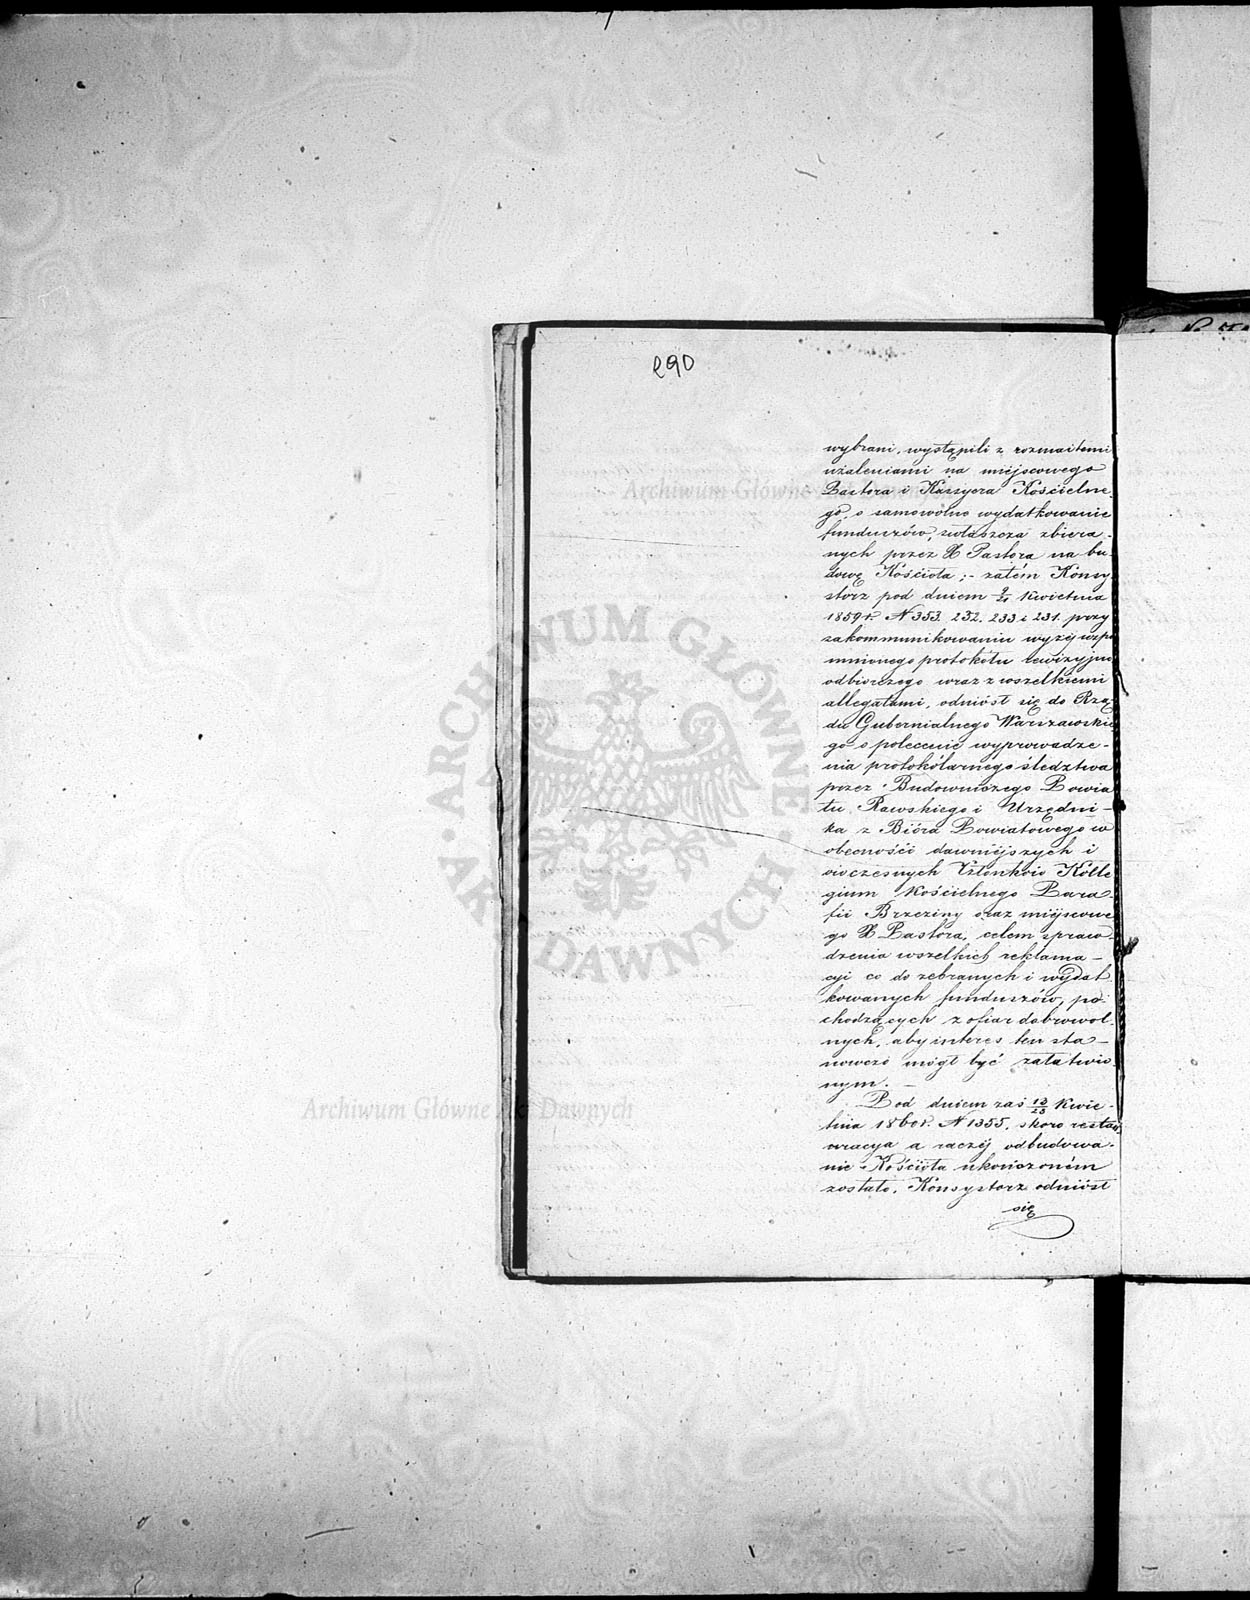 290
wybrani, wystąpili z rozmaitemi
użaleniami na miejscowego
Pastora i Kassyera Kościelne-
go, o samowolne wydatkowanie
funduszów, zwłaszcza zbiera-
nych przez X Pastora na bu-
dowę Kościoła ;- zatém Konsy
storz pod dniem 9/21 Kwietnia
1859 r. N 353. 232. 233 i 231. przy
zakommunikowaniu wyżéj wspo
mnionego protokółu rewizyjno
odbiorczego wraz z wszelkiemi
allegatami, odniósł się do Rzą-
du Gubernialnego Warszawskie
go o polecenie wyprowadze-
nia protokólarnego śledztwa
przez Budowniczego Powia
tu Rawskiego i Urzędni-
ka z Bióra Powiatowego w
obecności dawniejszych i
owczesnych Członków Kolle
gium Kościelnego Para-
fii Brzeziny oraz miejscowe
go X Pastora, celem spraw-
dzenia wszelkich reklama-
cyi co do zebranych i wydat
kowanych funduszów, po-
chodzących z ofiar dobrowol-
nych, aby interes ten sta-
nowczo mógł być załatwio
nym. -
Pod dniem zaś 13/25 Kwie-
tnia 1860 r. N 1355, skoro restau
racya a raczéj odbudowa-
nie Kościoła ukończoném
zostało, Konsystorz odniósł
się
Archiwum Główne Akt Dawnych
ARCHIWUM GŁÓWNE
· AKT DAWNYCH ·
Archiwum Główne Akt Dawnych